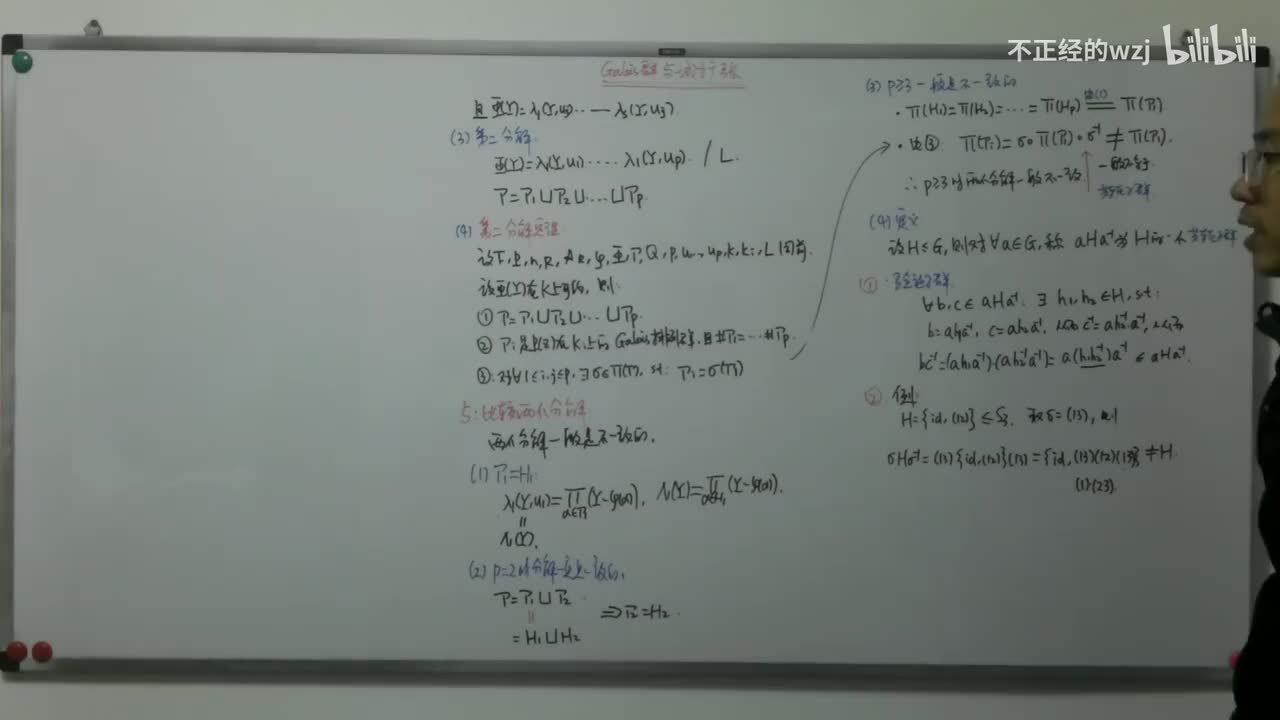 不正经的wzj bilibili
Galois群与域扩张
且 Ψ(Y)=λ₁(Y,u₁)……λ₁(Y,u₃)
(3) 第二分解
Ψ(Y)=λ₁(Y,u₁)……λ₁(Y,up). / L.
P=P₁⊔P₂⊔…⊔Pp
(4) 第二分解定理
设Ψ(Y)在K上可约, 则
① P=P₁⊔P₂⊔…⊔Pp.
② P₁是 在K₁上的Galois排列群, 且 #P₁=…=#Pp
③: 对∀1≤i,j≤p, ∃σ∈Π(P), st:
5. 比较两个分解
两个分解一般是不一致的.
(1) P₁=H₁
λ₁(Y,u₁)=∏(Y-φ(α)), Λ₁(Y)=∏(Y-φ(α)).
=
Λ₁(Y).
(2) p=2时分解一定是一致的.
P=P₁⊔P₂
= H₁⊔H₂
⇒P₂=H₂.
(3) p≥3一般是不一致的
· Π(H₁)=Π(H₂)=…=Π(Hp) = Π(P₁)
· 由③: Π(Pi)=σ∘Π(P₁)∘σ⁻¹≠Π(P₁).
∴ p≥3时两个分解一般不一致
一般不等于
(4) 定义
设H≤G, 则对∀a∈G, 称 aHa⁻¹为H的一个共轭子群
①
∀b,c∈aHa⁻¹: ∃ h₁,h₂∈H, st:
b=ah₁a⁻¹, c=ah₂a⁻¹,
bc⁻¹=(ah₁a⁻¹)·(ah₂⁻¹a⁻¹)=a(h₁h₂⁻¹)a⁻¹∈aHa⁻¹.
②. 例:
H={id,(12)}≤S₃. 取σ=(13), 则
σHσ⁻¹=(13){id,(12)}(13)={id,(13)(12)(13)}≠H.
(1)(23)